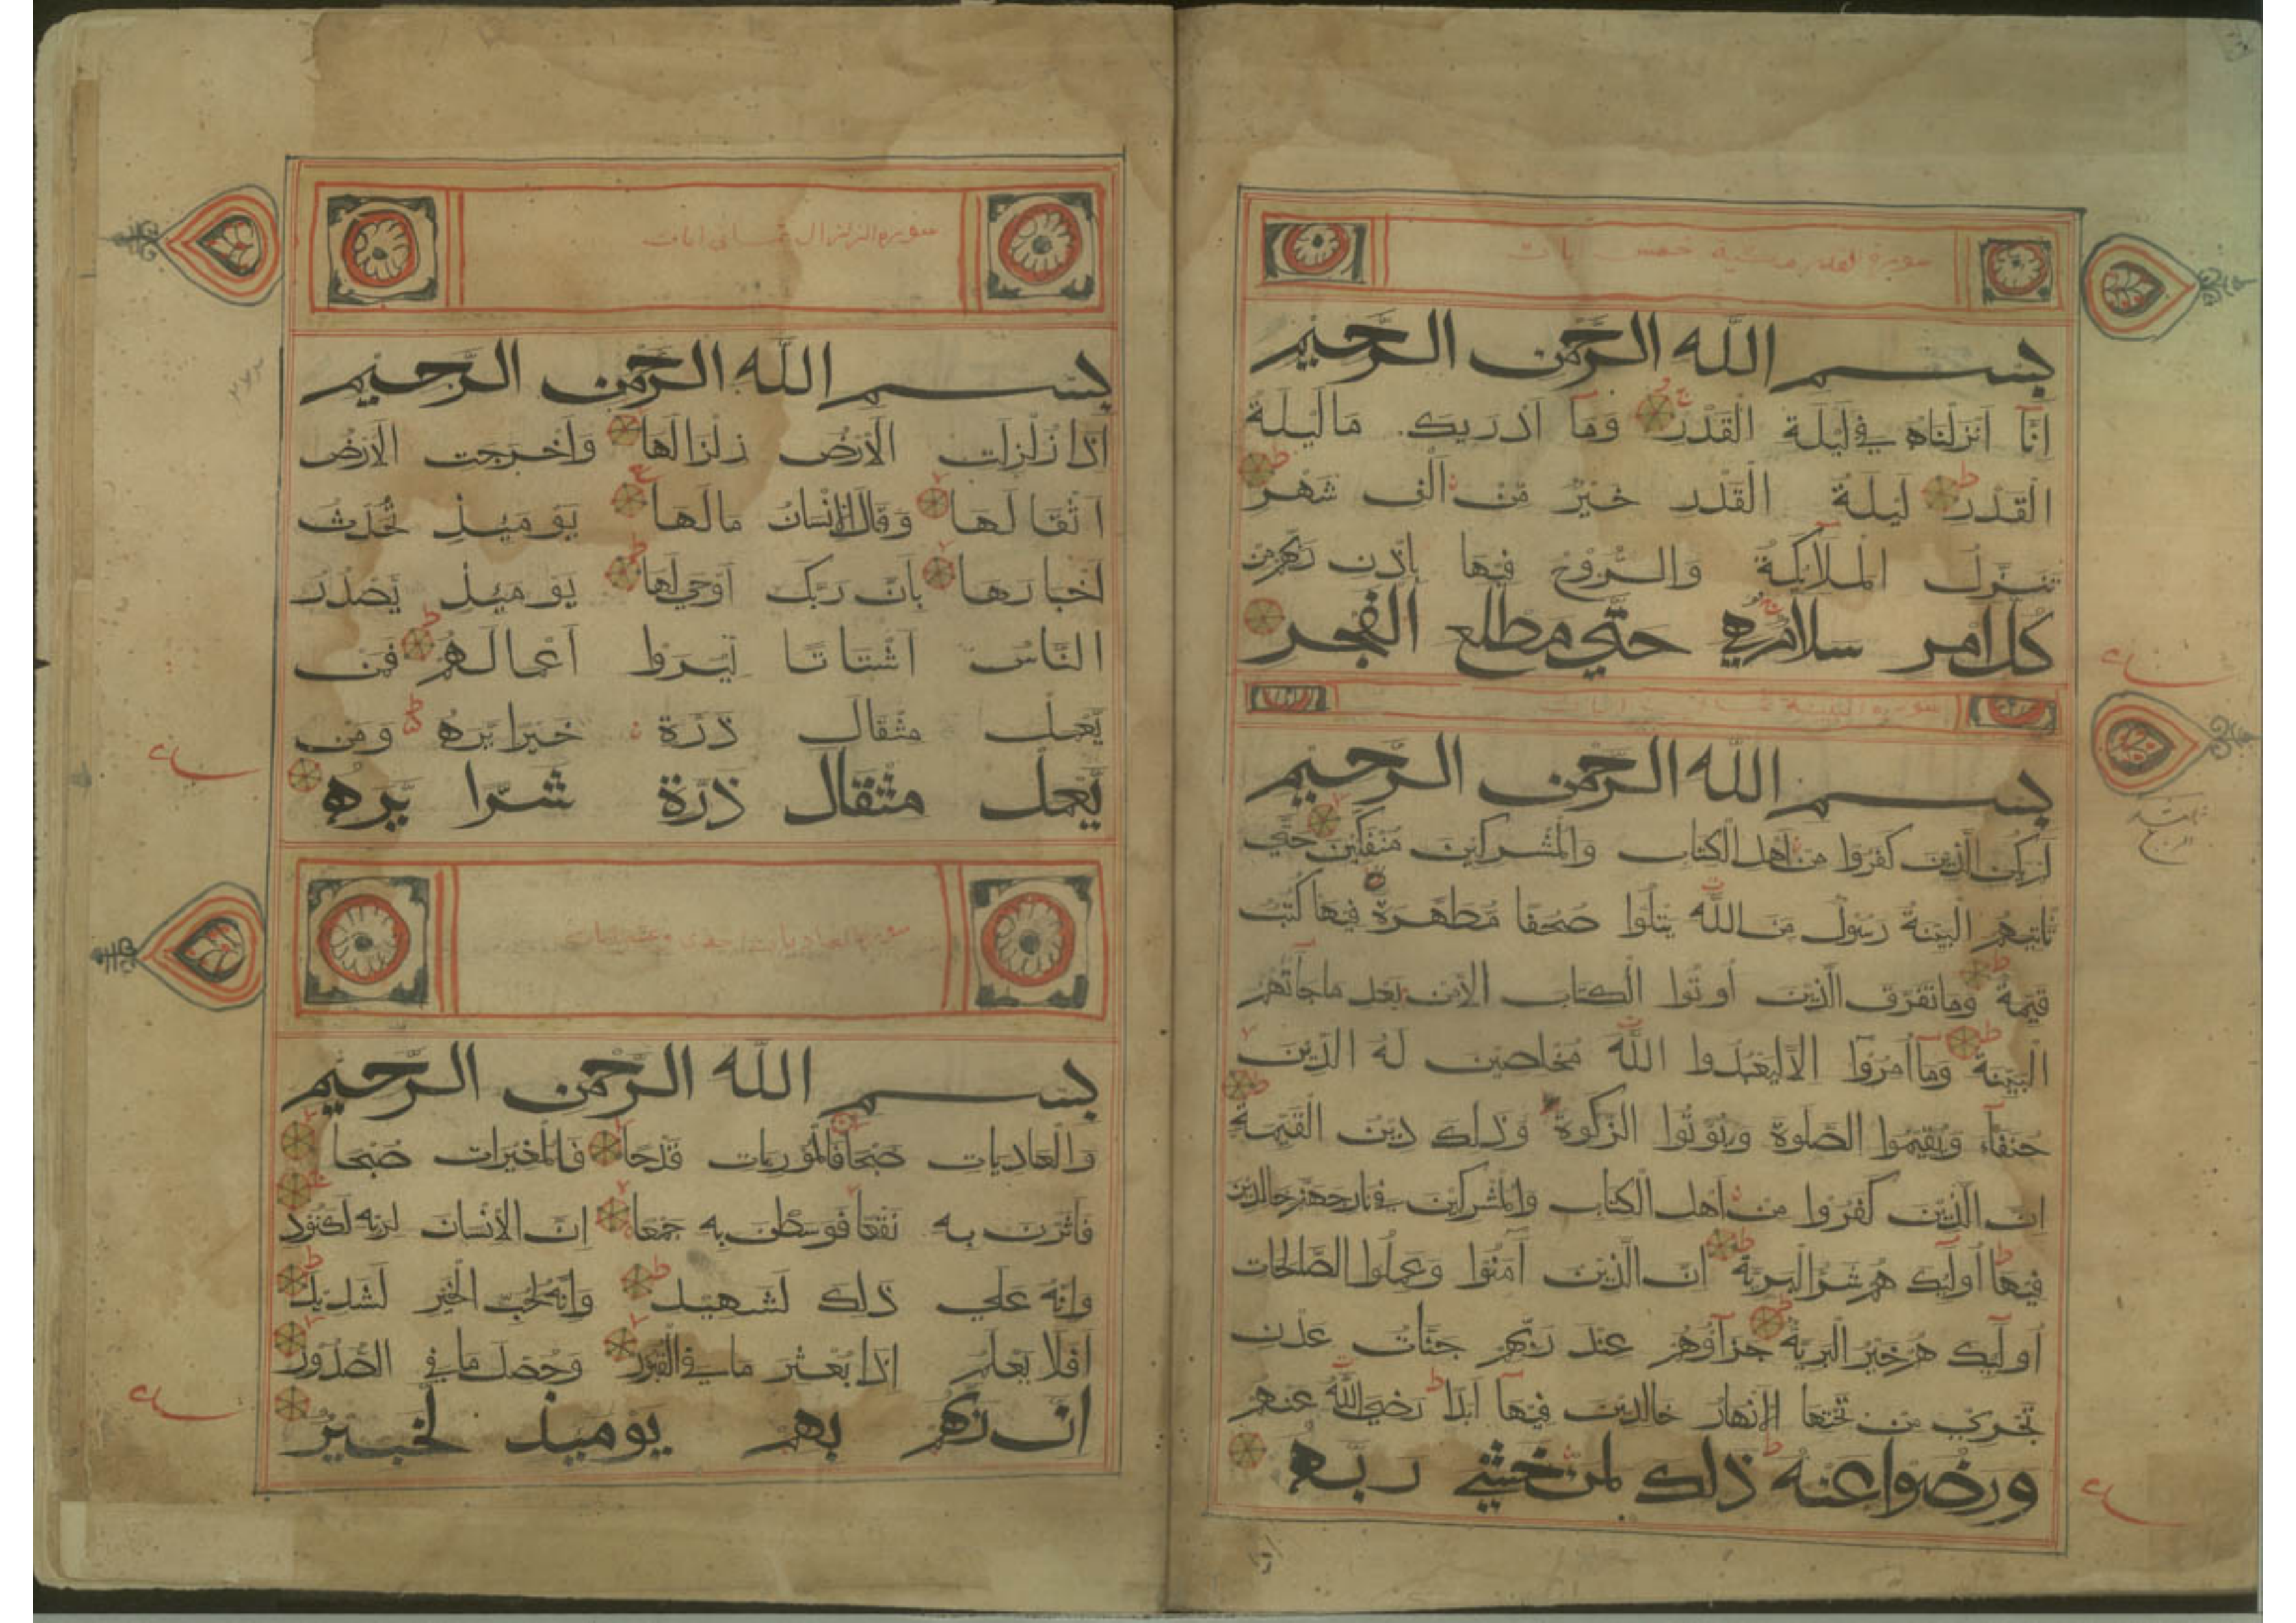 سورة القدر مدنية خمس ايات
بسم الله الرحمن الرحيم
اِنَّا اَنْزَلْنَاهُ فِي لَيْلَةِ الْقَدْرِ وَمَا اَدْرَيكَ مَا لَيْلَةُ
الْقَدْرِ لَيْلَةُ الْقَدْرِ خَيْرٌ مِّنْ اَلْفِ شَهْرٍ
تَنَزَّلُ الْمَلَائِكَةُ وَالرُّوْحُ فِيْهَا بِاِذْنِ رَبِّهِمْ مِنْ
كُلِّ اَمْرٍ سَلَامٌ هِيَ حَتَّي مَطْلَعِ الْفَجْرِ
سورة البينة
بسم الله الرحمن الرحيم
لَمْ يَكُنِ الَّذِيْنَ كَفَرُوْا مِنْ اَهْلِ الْكِتَابِ وَالْمُشْرِكِيْنَ مُنْفَكِّيْنَ حَتَّي
تَاْتِيَهُمُ الْبَيِّنَةُ رَسُوْلٌ مِنَ اللّٰهِ يَتْلُوا صُحُفًا مُّطَهَّرَةً فِيْهَا كُتُبٌ
قَيِّمَةٌ وَمَا تَفَرَّقَ الَّذِيْنَ اُوْتُوا الْكِتَابَ اِلَّا مِنْ بَعْدِ مَا جَآئَتْهُمُ
الْبَيِّنَةُ وَمَآ اُمِرُوْا اِلَّا لِيَعْبُدُوا اللّٰهَ مُخْلِصِيْنَ لَهُ الدِّيْنَ
حُنَفَآءَ وَيُقِيْمُوا الصَّلٰوةَ وَيُؤْتُوا الزَّكٰوةَ وَذَلِكَ دِيْنُ الْقَيِّمَةِ
اِنَّ الَّذِيْنَ كَفَرُوْا مِنْ اَهْلِ الْكِتَابِ وَالْمُشْرِكِيْنَ فِي نَارِ جَهَنَّمَ خَالِدِيْنَ
فِيْهَا اُولَٓئِكَ هُمْ شَرُّ الْبَرِيَّةِ اِنَّ الَّذِيْنَ آمَنُوْا وَعَمِلُوا الصَّالِحَاتِ
اُولَٓئِكَ هُمْ خَيْرُ الْبَرِيَّةِ جَزَآؤُهُمْ عِنْدَ رَبِّهِمْ جَنَّاتُ عَدْنٍ
تَجْرِيْ مِنْ تَحْتِهَا الْاَنْهَارُ خَالِدِيْنَ فِيْهَآ اَبَدًا رَضِيَ اللّٰهُ عَنْهُمْ
وَرَضُوْا عَنْهُ ذَلِكَ لِمَنْ خَشِيَ رَبَّهُ
سورة الزلزال ثماني ايات
بسم الله الرحمن الرحيم
اِذَا زُلْزِلَتِ الْاَرْضُ زِلْزَالَهَا وَاَخْرَجَتِ الْاَرْضُ
اَثْقَالَهَا وَقَالَ الْاِنْسَانُ مَا لَهَا يَوْمَئِذٍ تُحَدِّثُ
اَخْبَارَهَا بِاَنَّ رَبَّكَ اَوْحَي لَهَا يَوْمَئِذٍ يَصْدُرُ
النَّاسُ اَشْتَاتًا لِّيُرَوْا اَعْمَالَهُمْ فَمَنْ
يَّعْمَلْ مِثْقَالَ ذَرَّةٍ خَيْرًا يَّرَهُ وَمَنْ
يَّعْمَلْ مِثْقَالَ ذَرَّةٍ شَرًّا يَّرَهُ
سورة العاديات احدي وعشر ايات
بسم الله الرحمن الرحيم
وَالْعَادِيَاتِ ضَبْحًا فَالْمُوْرِيَاتِ قَدْحًا فَالْمُغِيْرَاتِ صُبْحًا
فَاَثَرْنَ بِهِ نَقْعًا فَوَسَطْنَ بِهِ جَمْعًا اِنَّ الْاِنْسَانَ لِرَبِّهِ لَكَنُوْدٌ
وَاِنَّهُ عَلَي ذَلِكَ لَشَهِيْدٌ وَاِنَّهُ لِحُبِّ الْخَيْرِ لَشَدِيْدٌ
اَفَلَا يَعْلَمُ اِذَا بُعْثِرَ مَا فِي الْقُبُوْرِ وَحُصِّلَ مَا فِي الصُّدُوْرِ
اِنَّ رَبَّهُمْ بِهِمْ يَوْمَئِذٍ لَّخَبِيْرٌ